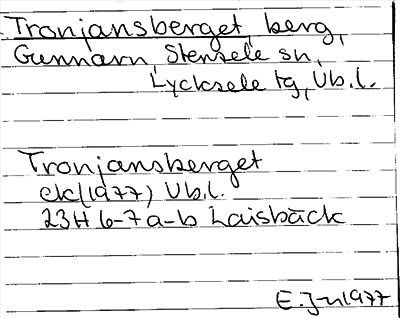 Tronjansberget, berg,
Gunnarn, Stensele sn,
Lycksele tg, Vb.l.
Tronjansberget
ek(1977) Vb.l.
23H 6-7 a-b Laisbäck
E.J-n 1977